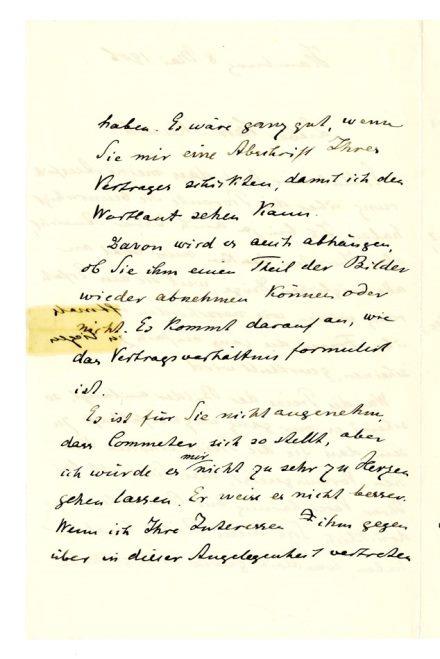 haben. Es wäre ganz gut, wenn
Sie mir eine Abschrift Ihres
Vertrages schickten, damit ich den
Wortlaut sehen kann.
Davon wird es auch abhängen,
ob Sie ihm einen Theil der Bilder
wieder abnehmen können oder
nicht. Es kommt darauf an, wie
das Vertragsverhältnis formuliert
ist.
Es ist für Sie nicht angenehm,
dass Commeter sich so stellt, aber
ich würde es mir nicht zu sehr zu Herzen
gehen lassen. Er weiss es nicht besser.
Wenn ich Ihre Interessen ihm gegen
über in dieser Angelegenheit vertreten